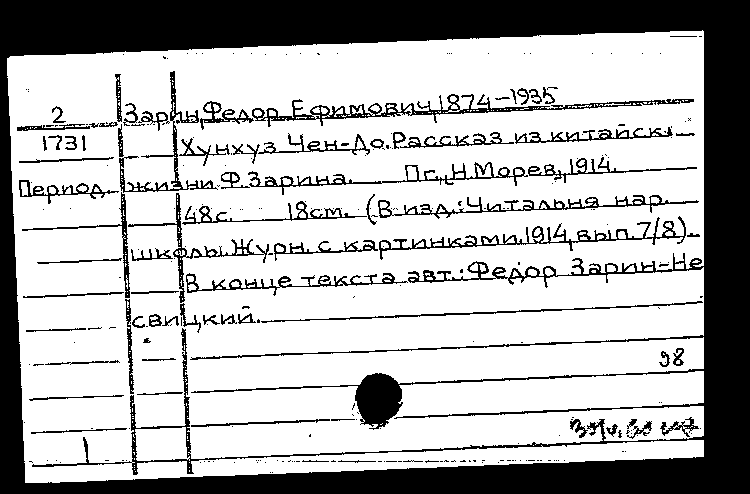 2 Зарин, Федор Ефимович, 1874-1935
1731 Хунхуз Чен-До. Рассказ из китайск.
Период. жизни Ф.Зарина. Пг., "Н.Морев", 1914.
48с. 18cm. (В изд.: Читальня нар.
школы. Журн. с картинками. 1914, вып. 7/8).
В конце текста авт.: Федор Зарин-Не
свицкий.
98
1